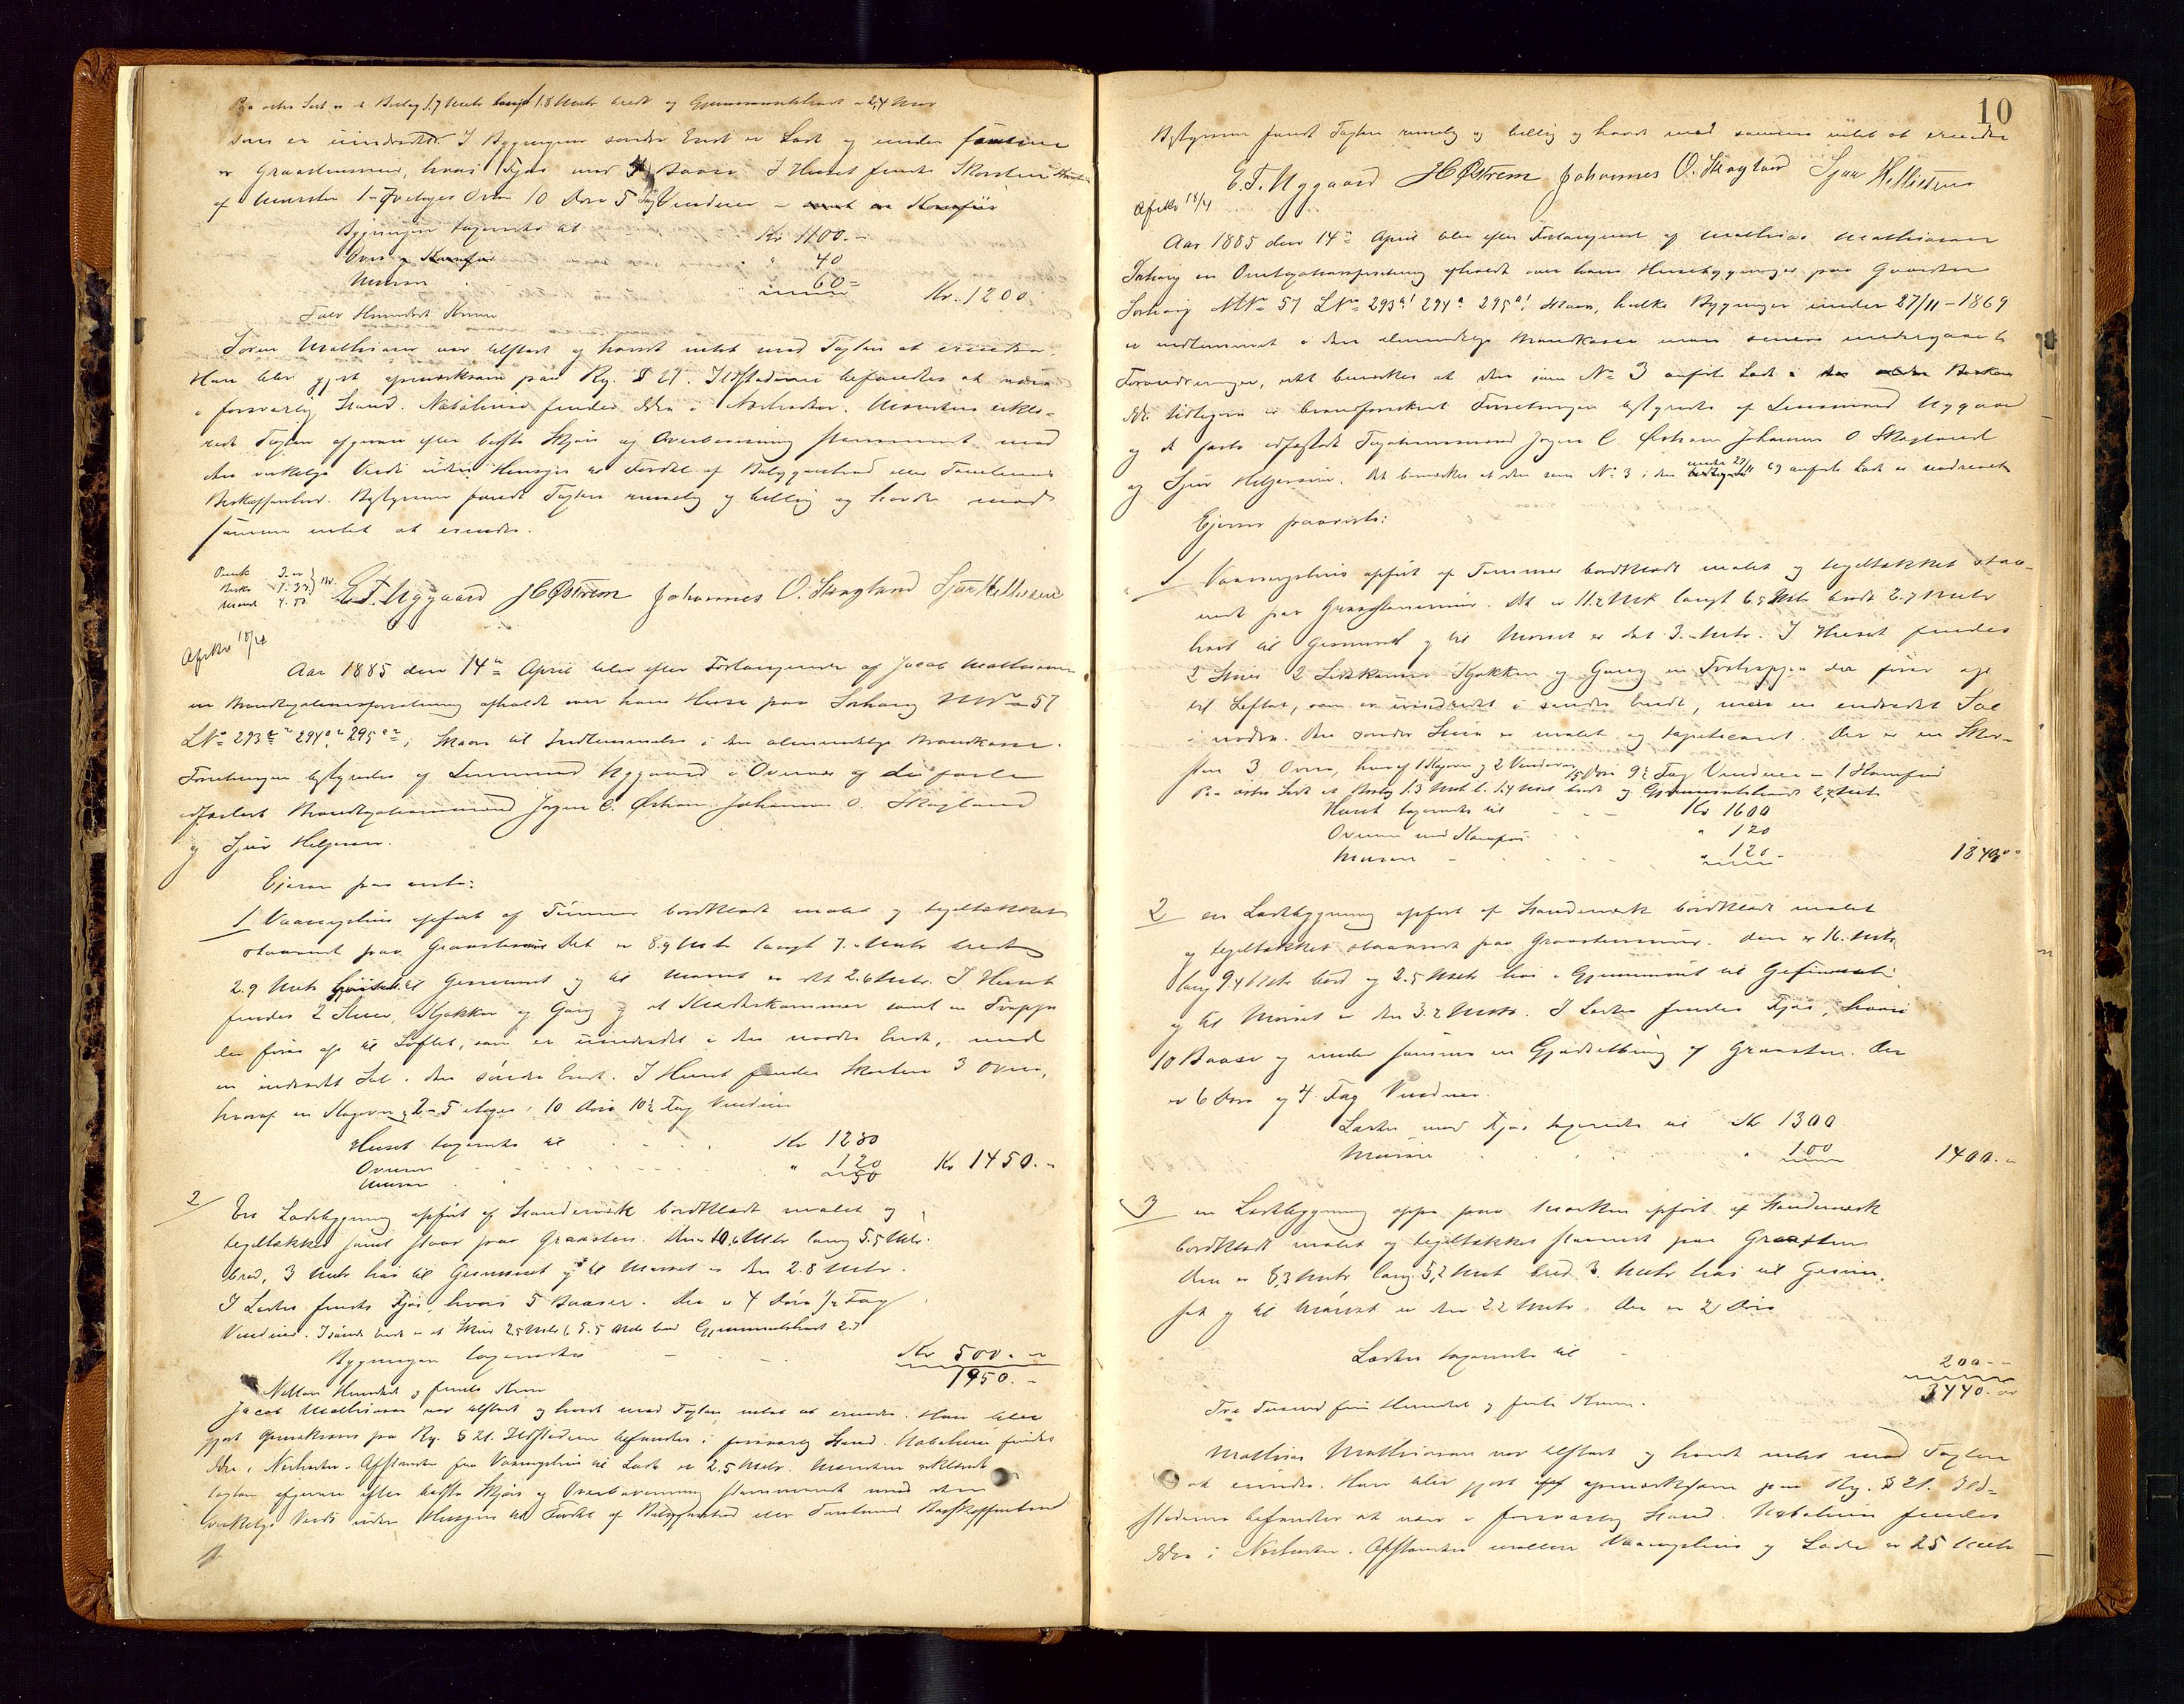 som er uindredt. I Bygningens søndre Ende er Lade og under samme
er Graastensmur, hvori Fjøs med 4 Baase. I Huset findes Skorsten
af Mursten 1 Ovn 10 Døre 5 Fag Vinduer
Bygningen taxeredes til Kr 1100.-
Ovn " 40
Muren " 60 = Kr. 1200
Tolv Hundrede Kroner
Søren Mathiasen var tilstede og havde intet mod Taxten at erindre.
Han blev gjort opmærksom paa Rg. § 21. Ildstederne befandtes at være
i forsvarlig Stand. Nabohuse findes ikke i Nærheden. Mændene erklæ-
rede Taxten afgiven efter bedste Skjøn og Overbevisning stemmende med
den virkelige Værdi uden Hensyn til Fordel af Beliggenhed eller Tomtens
Beskaffenhed. Bestyreren fandt Taxten rimelig og billig og havde mod
samme intet at erindre.
E. T. Nygaard J C Østrem Johannes O. Skogland Sjur Helliesen
Afskr 18/4
Aar 1885 den 14de April blev efter Forlangende af Jacob Mathiasen
en Brandtaxationsforretning afholdt over hans Huse paa Sørhaug MNo 57
LNo 293 294 295 i Skaare til Indlemmelse i den almindelige Brandkasse.
Forretningen bestyredes af Lensmand Nygaard i Overvær af de faste
edfæstede Brandtaxationsmænd Jørgen C. Østrem Johannes O. Skogland
og Sjur Helgesen.
Ejeren paaviste:
1 Vaaningshus opført af Tømmer bordklædt malet og tegltækket
staaende paa Graastensmur Det er 8.9 Metr langt 7. Metr bredt
2.9 Metr høit til Gesimset og til Mønet er det 2.6 Metr. I Huset
findes 2 Stuer, Kjøkken og Gang og et Kammer samt en Trappe
der fører op til Loftet, som er uindredet i den nordre Ende, med
en indredt Sal i den søndre Ende. I Huset findes Skorsten 3 Ovne,
hvoraf en Kogeovn 10 Døre 10½ Fag Vinduer
Huset taxeredes til Kr 1280
Ovnene " 120 Kr 1450.-
Muren 50
2 En Ladebygning opført af Standerværk bordklædt malet og
tegltækket samt staar paa Graasten. Den er 10,6 Metr lang 5.5 Metr.
bred, 3 Metr høi til Gesimset og til Mønet er den 2.8 Metr.
I Laden findes Fjøs, hvori 5 Baaser. Der er 4 Døre ½ Fag
Bygningen taxeredes Kr 500.-
1950.-
Nitten Hundrede og femti Kroner
Jacob Mathiasen var tilstede og havde mod Taxten intet at erindre. Han blev
gjort opmærksom paa Rg. § 21. Ildstederne befandtes i forsvarlig Stand. Nabohuse findes
ikke i Nærheden. Afstanden fra Vaaningshus til Lade er 2.5 Metr. Mændene erklærede
taxten afgiven efter bedste Skjøn og Overbevisning stemmende med den
virkelige Værdi uden Hensyn til Fordel af Beliggenhed eller Tomtens Beskaffenhed
10
Bestyreren fandt Taxten rimelig og billig og havde mod samme intet at erindre
E. T. Nygaard J C Østrem Johannes O. Skogland Sjur Helliesen
Afskr 18/4
Aar 1885 den 14de April blev efter Forlangende af Mathias Mathiasen
Sørhaug en Omtaxationsforretning afholdt over hans Husebygninger paa Gaarden
Sørhaug MNo 57 LNo 293 294 295 Skaare, hvilke Bygninger under 27/11-1869
er indlemmet i den almindelige Brandkasse men senere undergaaet
Forandringer, idet bemærkes at den som No 3 anførte Lade
ikke tidligere er brandforsikret Forretningen bestyredes af Lensmand Nygaard
og de faste edfæstede Taxationsmænd Jørgen C. Østrem Johannes O Skogland
og Sjur Helgesen. Det bemærkes at den som No 3 i den under 27/11 69 anførte Lade er nedrevet
Ejeren paaviste:
1 Vaaningshus opført af Tømmer bordklædt malet og tegltækket staa-
ende paa Graastensmur. Det er 11.2 Metr langt 6.5 Metr bredt 2.7 Metr
høit til Gesimset og til Mønet er det 3. Metr. I Huset findes
2 Stuer 2 Sidekamre Kjøkken og Gang en Trappe der fører op
til Loftet, som er uindredt i søndre Ende, men en indredet Sal
i nordre. Den søndre Stue er malet og tapetseret. Der er en Skor-
sten 3 Ovne, hvoraf 1 Kogeovn og 2 Vindovne 15 Døre 9½ Fag Vinduer 1 Komfur
Huset taxeredes til Kr 1600
Ovnene med Komfur " 120
Muren " 120 - 1840
2 en Ladebygning opført af Standerværk bordklædt malet
og tegltækket staaende paa Graastensmur. Den er 16. Metr
lang 9.4 Metr bred og 2.5 Metr høi i Gjennemsnit til Gesimset
og til Mønet er den 3.2 Metr. I Laden findes Fjøs, hvori
10 Baase og under samme en Gjødselbing af Graasten. Der
er 6 Døre og 4 Fag Vinduer.
Laden med Fjøs taxeredes til Kr 1300
Muren " 100 1400.-
3 en Ladebygning oppe paa Marken opført af Standerværk
bordklædt malet og tegltækket staaende paa Graasten
Den er 8,3 Metr lang 5,2 Metr bred 3. Metr høi til Gesim-
set og til Mønet er den 2.2 Metr. Der er 2 Døre
Laden taxeredes til 200.-
3440.-
Tre Tusind fire Hundrede og firti Kroner.
Mathias Mathiasen var tilstede og havde intet mod Taxten
at erindre. Han blev gjort opmærksom paa Rg. § 21. Ild-
stederne befandtes at være i forsvarlig Stand. Nabohuse findes
ikke i Nærheden. Afstanden mellem Vaaningshus og Lade er 25 Metr